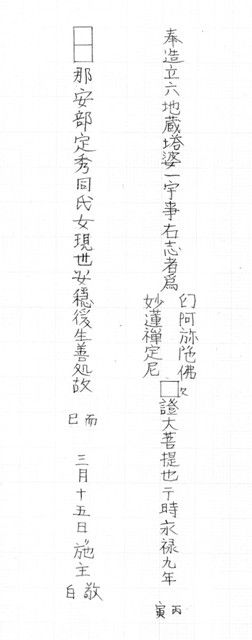 奉造立六地蔵塔婆一宇事右志者為
幻阿弥陀佛々
妙蓮禅定尼
□證大菩提也于時永禄九年
丙
寅
□□那安部定秀同氏女現世安穏後生善処故
而
已
三月十五日施主
敬
白